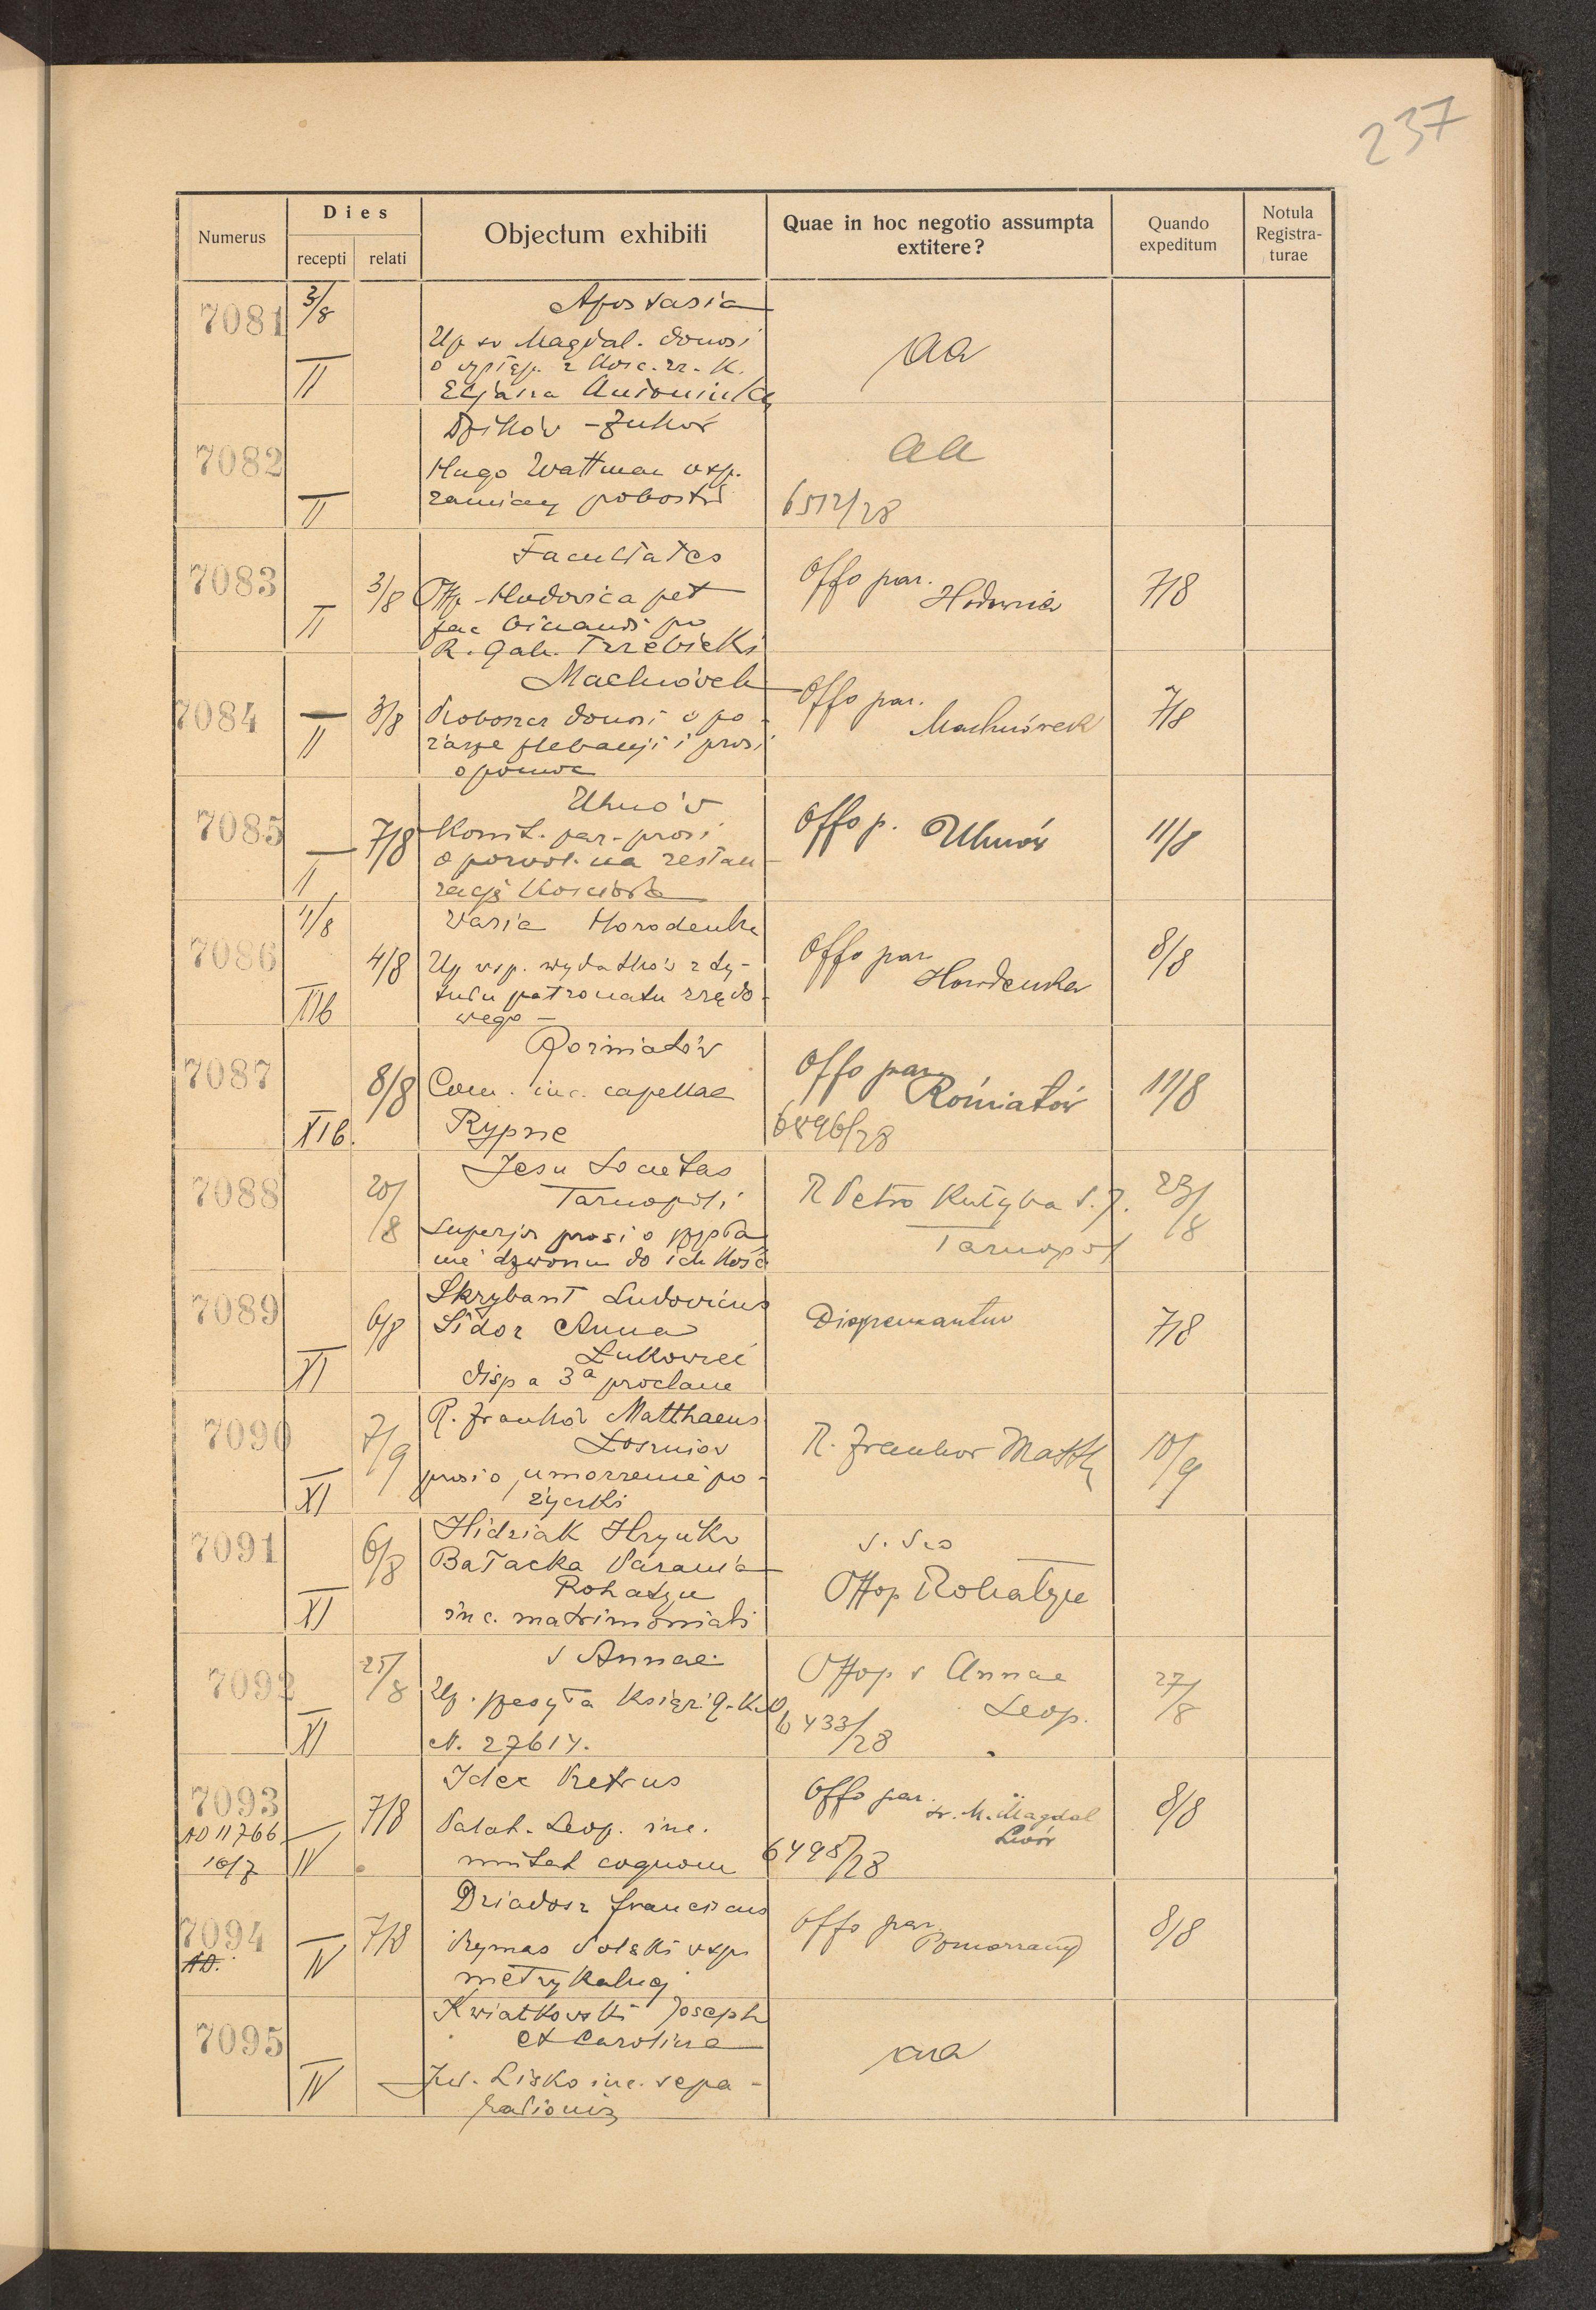 237
Numerus
Dies
recepti relati
Objectum exhibiti
Quae in hoc negotio assumpta
extitere?
Quando
expeditum
Notula
Registra-
turae
7081 3/8 Apostasia
Up św Magdal. donosi
o występ. z Kośc. rz. K.
II aa
7082 Dzików - Żuków
Hugo Wattman
II 6512/28
aa
7083 3/8 Facultates
Offp. Hodowica pet
fac binandi po
R. Gab. Trzebicki
II Offo par. Hodowica 7/8
7084 3/8 Machnówek
Proboszcz donosi o po-
żarze plebanji i prosi
o pomoc
II Offo par. Machnówek 7/8
7085 7/8 Uhnów
Komit. par. prosi
o pozwol. na restau-
rację Kościoła
II Offo p. Uhnów 11/8
7086 1/8 4/8 Varia Horodenka
Up wsp. wydatków z ty-
tułu patronatu rządo-
wego -
XIIb Offo par Horodenka 8/8
7087 8/8 Rożniatów
Com. inc. capellae
Rypne
XIb. Offo par. Rożniatów 11/8
6896/28
7088 20/8 Jesu Societas
Tarnopoli
Superjor prosi o
dzwonu do ich Kość
R Petro Kutyba S. J. 23/8
Tarnopol
7089 6/8 Skrybant Ludovicus
Sidor Anna
Łukowiec
disp a 3ª proclam
XI Dispensantur 7/8
7090 7/9 R. Frankór Matthaeus
Łoszniów
prosi o umorzenie po-
życzki
XI R. Frankor Matth 10/9
7091 6/8 Hidziak Hryńko
Bałacka Parania
Rohatyn
inc. matrimoniali
XI Offop Rohatyn
7092 25/8 s Annae
Up. Książ.
N. 27614.
XI Offop s Annae
Leop. 27/8
6433/28
7093 7/8 Idec Petrus
AD 11766
10/7 Palat. Leop. inc.
mutat cognom
IV Offo par. św. M. Magdal
Lwów 8/8
6495/28
7094 7/8 Dziadosz Franciscus
AD. Prymas Polski wsp.
metrykalnej
IV Offo par. Pomorzany 8/8
7095 Kwiatkowski Joseph
et Carolina
Lisko inc. sepa-
rationis
IV aa